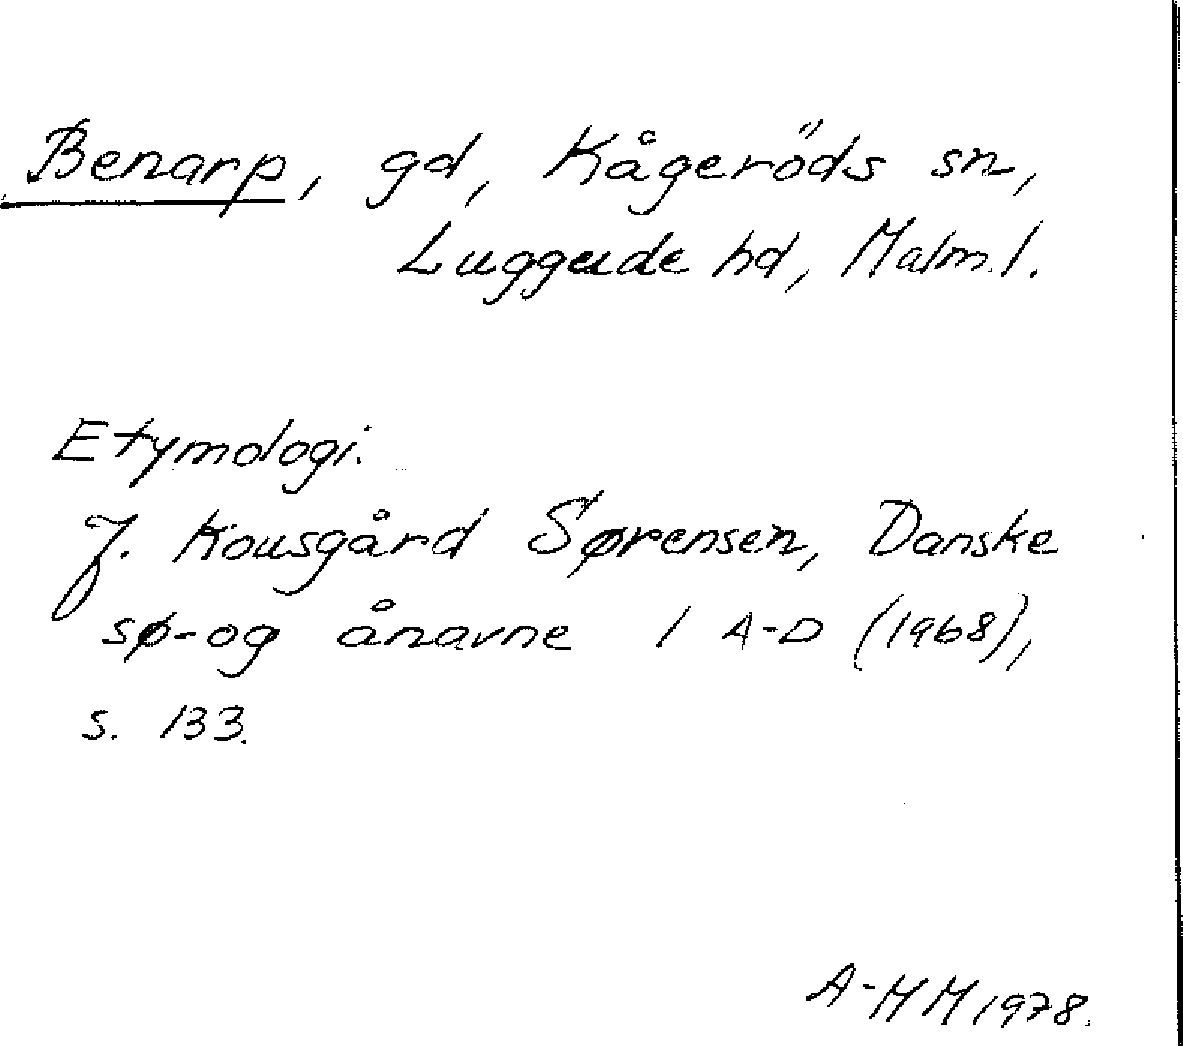 Benarp, gd, Kågeröds sn,
Luggude hd, Malm. l.
Etymologi.
J. Kousgård Sørensen, Danske
sø- og ånavne 1 A-D (1968),
s. 133.
A-MM 1978.